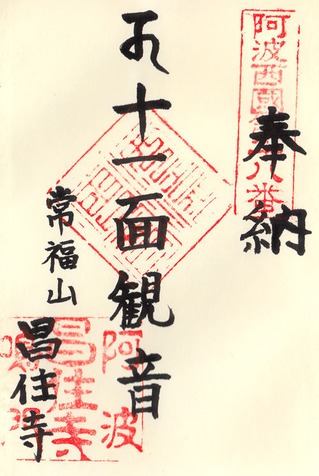 奉納
十一面観音
常福山
昌住寺
阿波西國
八番
阿波
昌住寺